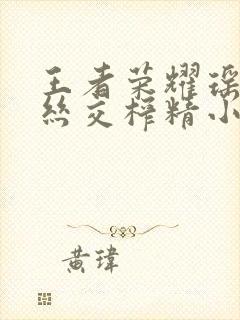 王者荣耀瑶
丝交榨精小
黄瑋